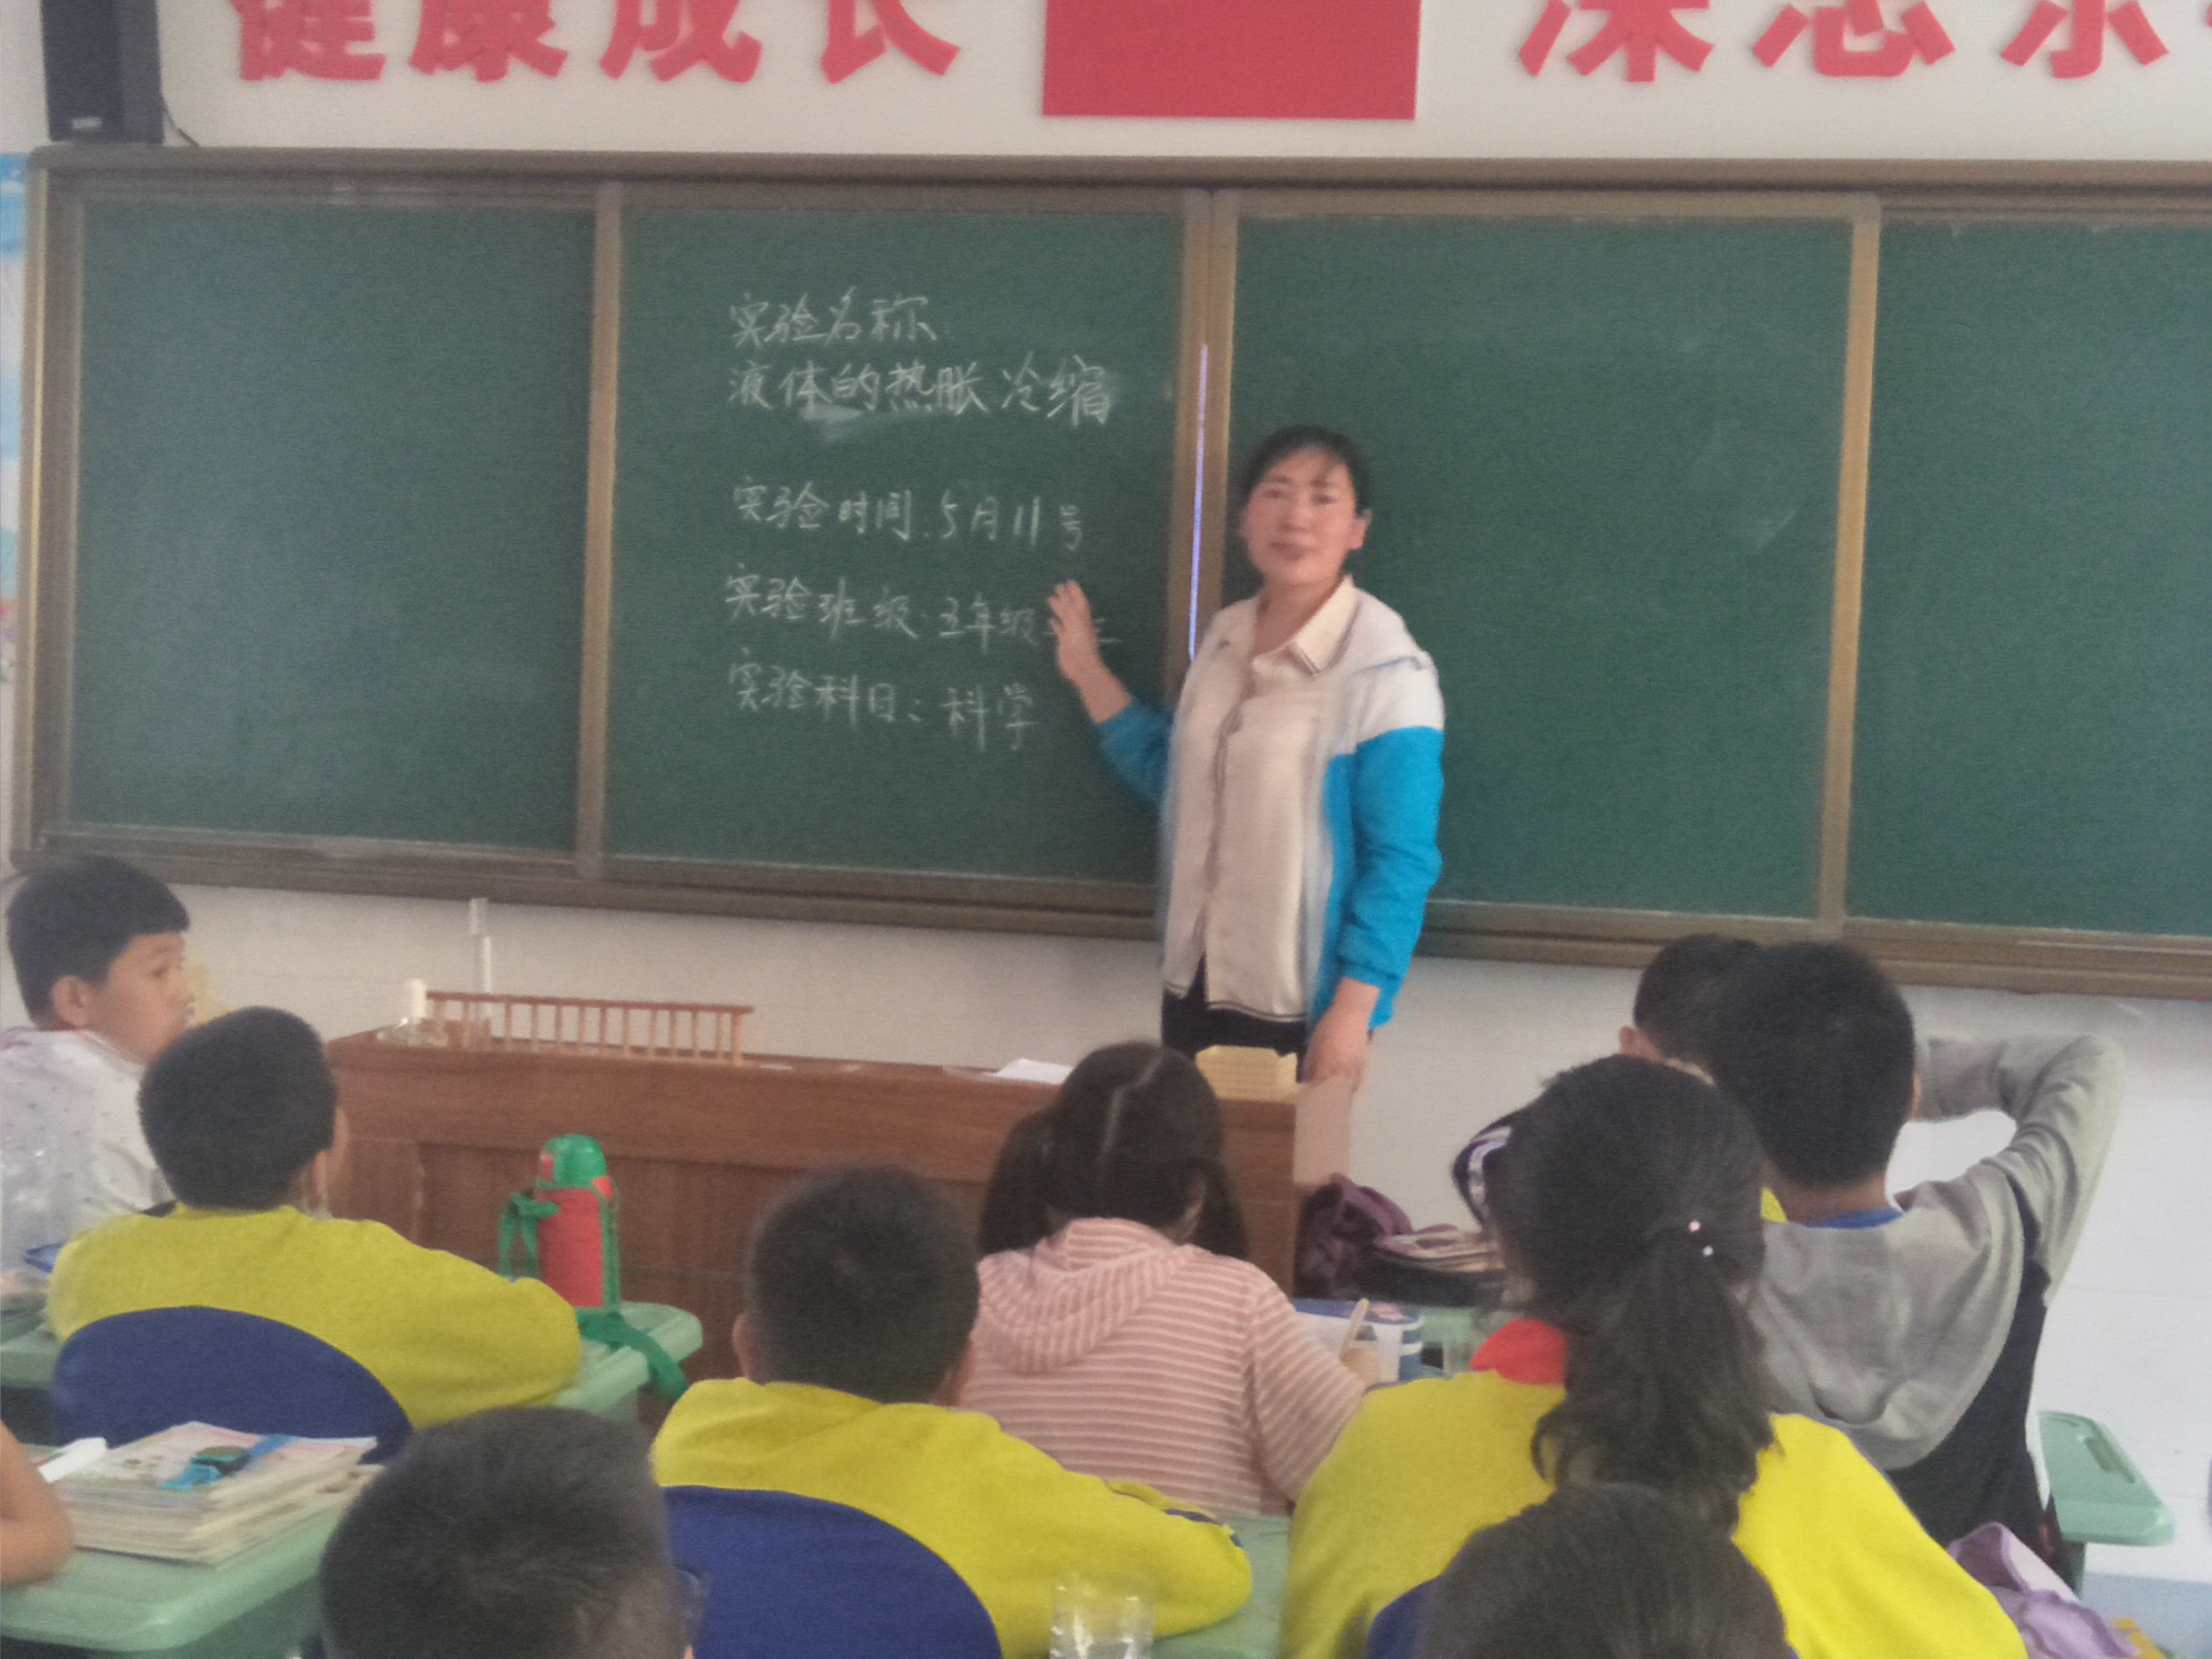 健康成长
深思
实验名称
液体的热胀冷缩
实验时间.5月11号
实验班级:五年级
实验科目:科学